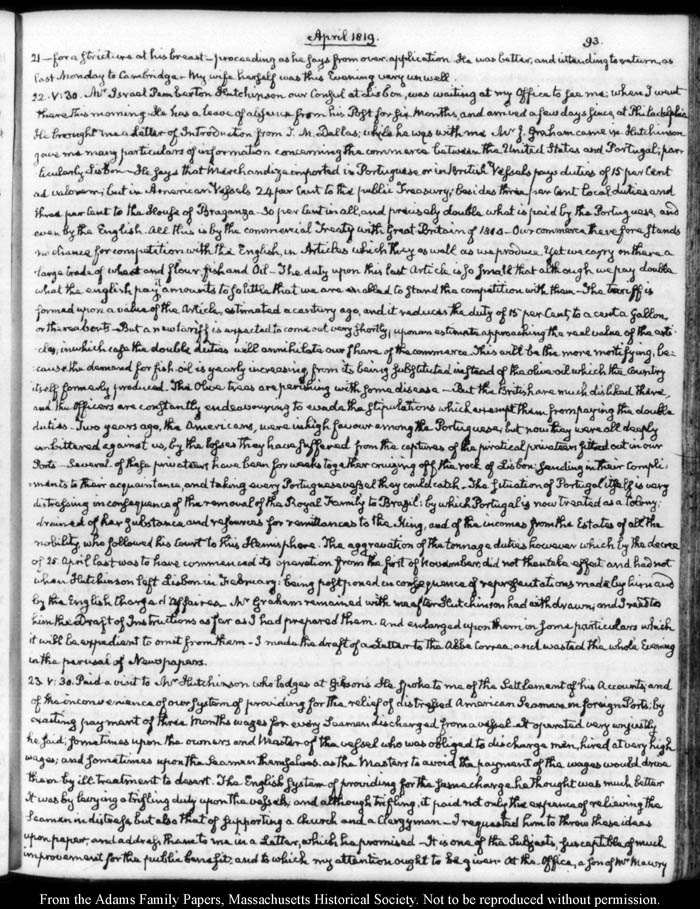 April 1819.
93.
21 — for a stricture at his breast — proceeding as he says from over application. He was better, and intending to return, as
last Monday to Cambridge — My wife herself was this Evening very unwell.
22. V:30. Mr Israel Pemberton Hutchinson our Consul at Lisbon, was waiting at my Office to see me; when I went
there this morning. He has a leave of absence from his Post for six Months, and arrived a few days since, at Philadelphia
He brought me a Letter of Introduction from G. M. Dallas; while he was with me Mr J. Graham came in. Hutchinson
gave me many particulars of information concerning the commerce between the United States and Portugal; par-
ticularly Lisbon — He says that Merchandize imported in Portuguese or in British Vessels pays duties of 15 per Cent
ad valorem; but in American Vessels 24 per Cent to the public Treasury; besides three per Cent local duties and
three per Cent to the House of Braganza — 30 per Cent in all, and precisely double what is paid by the Portuguese, and
even by the English. All this is by the commercial Treaty with Great Britain of 1810 — Our commerce therefore stands
no chance for competition with the English, in Articles which they as well as we produce. Yet we carry on there a
large trade of wheat and flour, fish and Oil — The duty upon this last Article is so small that although we pay double
what the English pay, it amounts to so little that we are enabled to stand the competition with them — The tariff is
formed upon a value of the Article, estimated a century ago, and it reduces the duty of 15 per Cent, to a cent a Gallon,
or thereabouts — But a new tariff is expected to come out very shortly, upon an estimate approaching the real value of the arti-
cles; in which case the double duties will annihilate our share of the commerce. This will be the more mortifying, be-
cause the demand for fish oil is yearly increasing, from its being substituted instead of the olive oil which the Country
itself formerly produced. The Olive trees are perishing with some disease — But the British are much disliked there,
and the Officers are constantly endeavouring to evade the stipulations which exempt them from paying the double
duties — Two years ago, the Americans, were in high favour among the Portuguese; but now they were all deeply
embittered against us, by the losses they have suffered from the captures of the piratical privateers fitted out in our
Ports — Several of these privateers have been for weeks together cruizing off the rock of Lisbon; sending in their compli-
ments to their acquaintance, and taking every Portuguese vessel they could catch. The situation of Portugal itself is very
distressing in consequence of the removal of the Royal Family to Brazil; by which Portugal is now treated as a Colony;
drained of her substance and resources for remittances to the King, and of the incomes from the Estates of all the
nobility who followed his Court to this Hemisphere. The aggravation of the tonnage duties however which by the decree
of 25. April last was to have commenced its operation from the first of November, did not then take effect and had not
when Hutchinson left Lisbon in February: being postponed in consequence of representations made by him and
by the English Chargé d'Affaires. Mr Graham remained with me after Hutchinson had withdrawn; and I read to
him the Draft of Instructions as far as I had prepared them. And enlarged upon them in some particulars which
it will be expedient to omit from them — I made the draft of a Letter to the Abbé Correa; and wasted the whole Evening
in the perusal of Newspapers.
23. V:30. Paid a visit to Mr Hutchinson who lodges at Gibson's. He spoke to me of the Settlement of his Accounts, and
of the inconvenience of our system of providing for the relief of distressed American Seamen, in foreign Ports; by
exacting payment of three Months wages for every Seamen discharged from a vessel. It operated very unjustly
he said; sometimes upon the owners and Master of the vessel who was obliged to discharge men, hired at very high
wages; and sometimes upon the Seamen themselves, as the Masters to avoid the payment of the wages would drive
them by ill treatment to desert. The English system of providing for the same charge he thought was much better
It was by levying a trifling duty upon the vessels, and although trifling, it paid not only the expence of relieving the
Seamen in distress but also that of supporting a Church and a Clergyman — I requested him to throw these ideas
upon paper, and address them to me in a Letter, which he promised — It is one of the Subjects, susceptible of much
improvement for the public benefit, and to which my attention ought to be given. At the Office, a son of Mr Maury
From the Adams Family Papers, Massachusetts Historical Society. Not to be reproduced without permission.